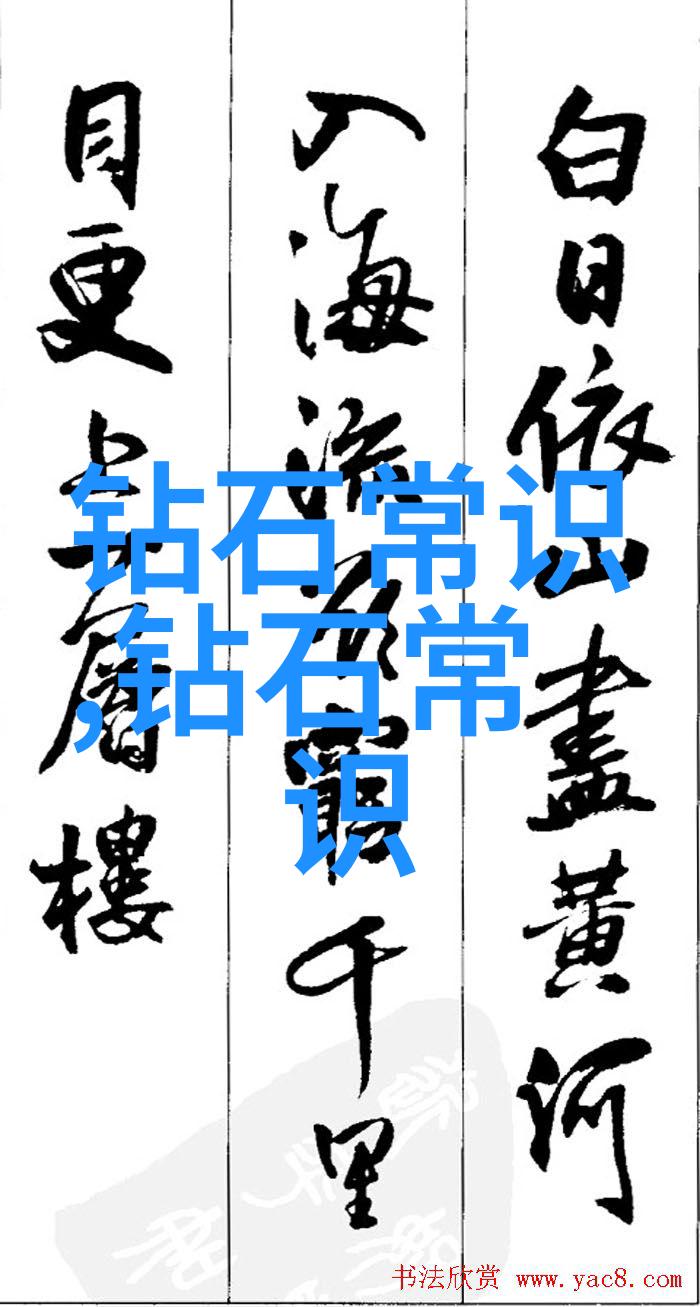 白日依山盡黄河
入海流欲窮千里
目更上一層樓
钻石常识
,钻石常
识
书法欣赏 www.yac8.com